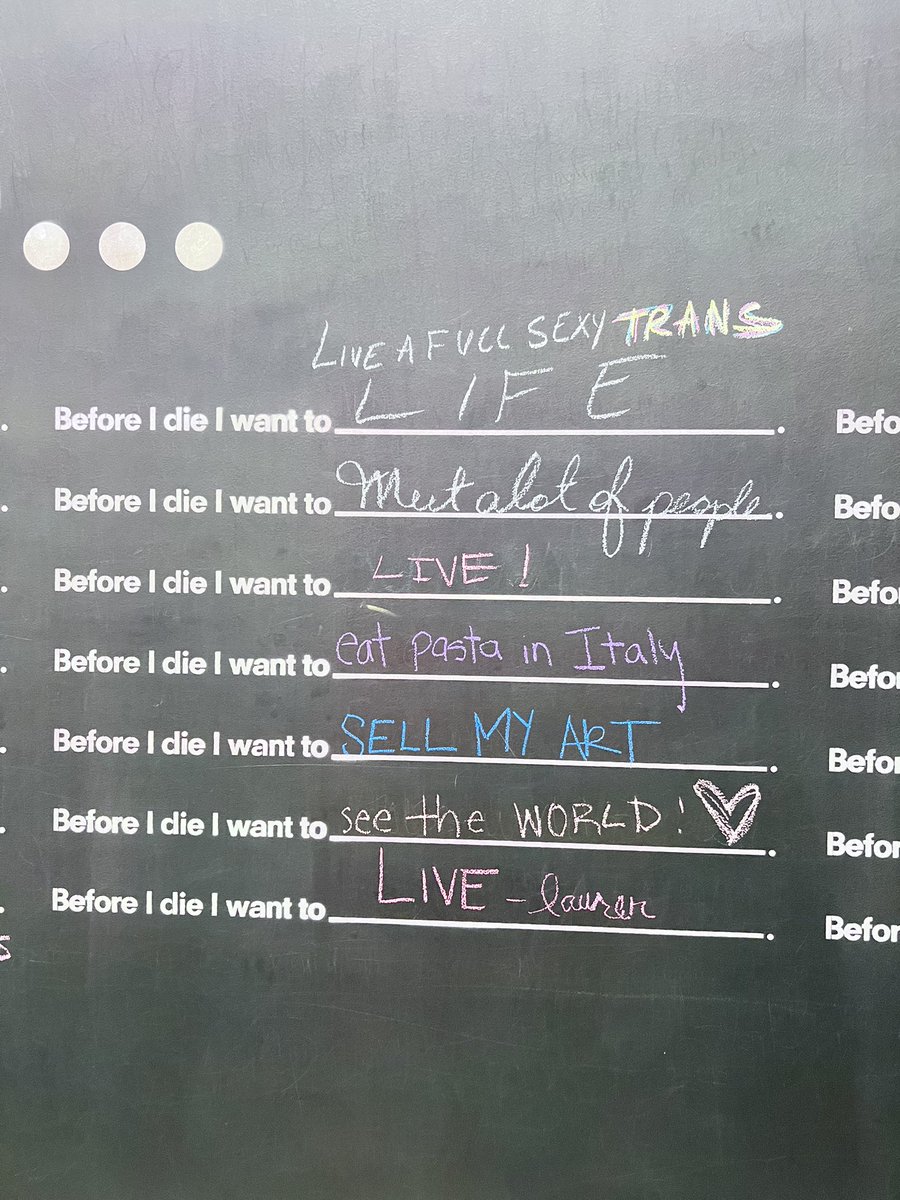 LIVE A FULL SEXY TRANS
. Before I die I want to LIFE. Befo
. Before I die I want to Meet alot of people. Befo
. Before I die I want to LIVE!. Befo
. Before I die I want to eat pasta in Italy. Befor
. Before I die I want to SELL MY ART. Befor
. Before I die I want to see the WORLD!. Befor
. Before I die I want to LIVE - lauren. Befor
s